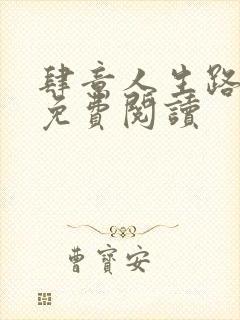 肆意人生路
免費閱讀
曹寶安